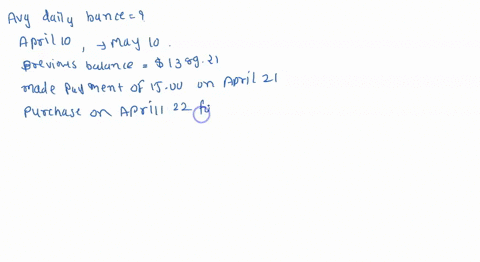 Avg daily bance = ?
April 10, → May 10.
Previous balance = $1389.21
made payment of 15.00 on April 21
Purchase on April 22 fo